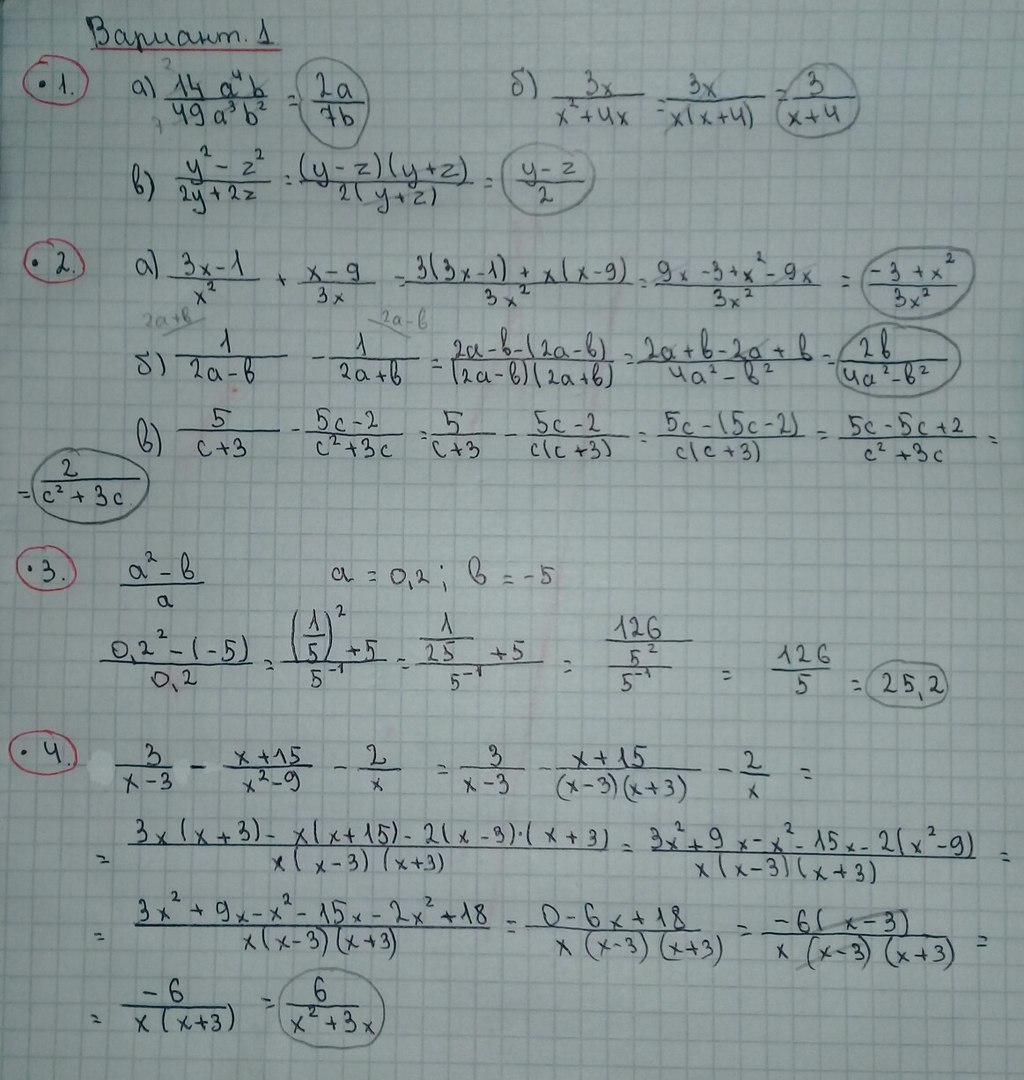 Вариант. 1
• 1. а) 14 a⁴ b / 49 a³ b² = 2a / 7b б) 3x / x² + 4x = 3x / x(x+4) = 3 / x+4
2 7
в) y² - z² / 2y + 2z = (y - z)(y+z) / 2(y+z) = y - z / 2
• 2. а) 3x - 1 / x² + x - 9 / 3x = 3(3x-1) + x(x-9) / 3x² = 9x - 3 + x² - 9x / 3x² = -3 + x² / 3x²
2a+b 2a-b
б) 1 / 2a - b - 1 / 2a + b = 2a - b - (2a - b) / (2a - b)(2a + b) = 2a + b - 2a + b / 4a² - b² = 2b / 4a² - b²
в) 5 / c + 3 - 5c - 2 / c² + 3c = 5 / c + 3 - 5c - 2 / c(c + 3) = 5c - (5c - 2) / c(c + 3) = 5c - 5c + 2 / c² + 3c =
= 2 / c² + 3c
• 3. a² - b / a a = 0,2 ; b = -5
0,2² - (-5) / 0,2 = (1/5)² + 5 / 5⁻¹ = 1/25 + 5 / 5⁻¹ = 126/5² / 5⁻¹ = 126 / 5 = 25,2
• 4. 3 / x - 3 - x + 15 / x² - 9 - 2 / x = 3 / x - 3 - x + 15 / (x - 3)(x + 3) - 2 / x =
= 3x(x + 3) - x(x + 15) - 2(x - 3)·(x + 3) / x(x - 3)(x+3) = 3x² + 9x - x² - 15x - 2(x² - 9) / x(x - 3)(x + 3) =
= 3x² + 9x - x² - 15x - 2x² + 18 / x(x - 3)(x + 3) = 0 - 6x + 18 / x(x - 3)(x + 3) = -6(x - 3) / x(x - 3)(x + 3) =
= -6 / x(x + 3) = 6 / x² + 3x